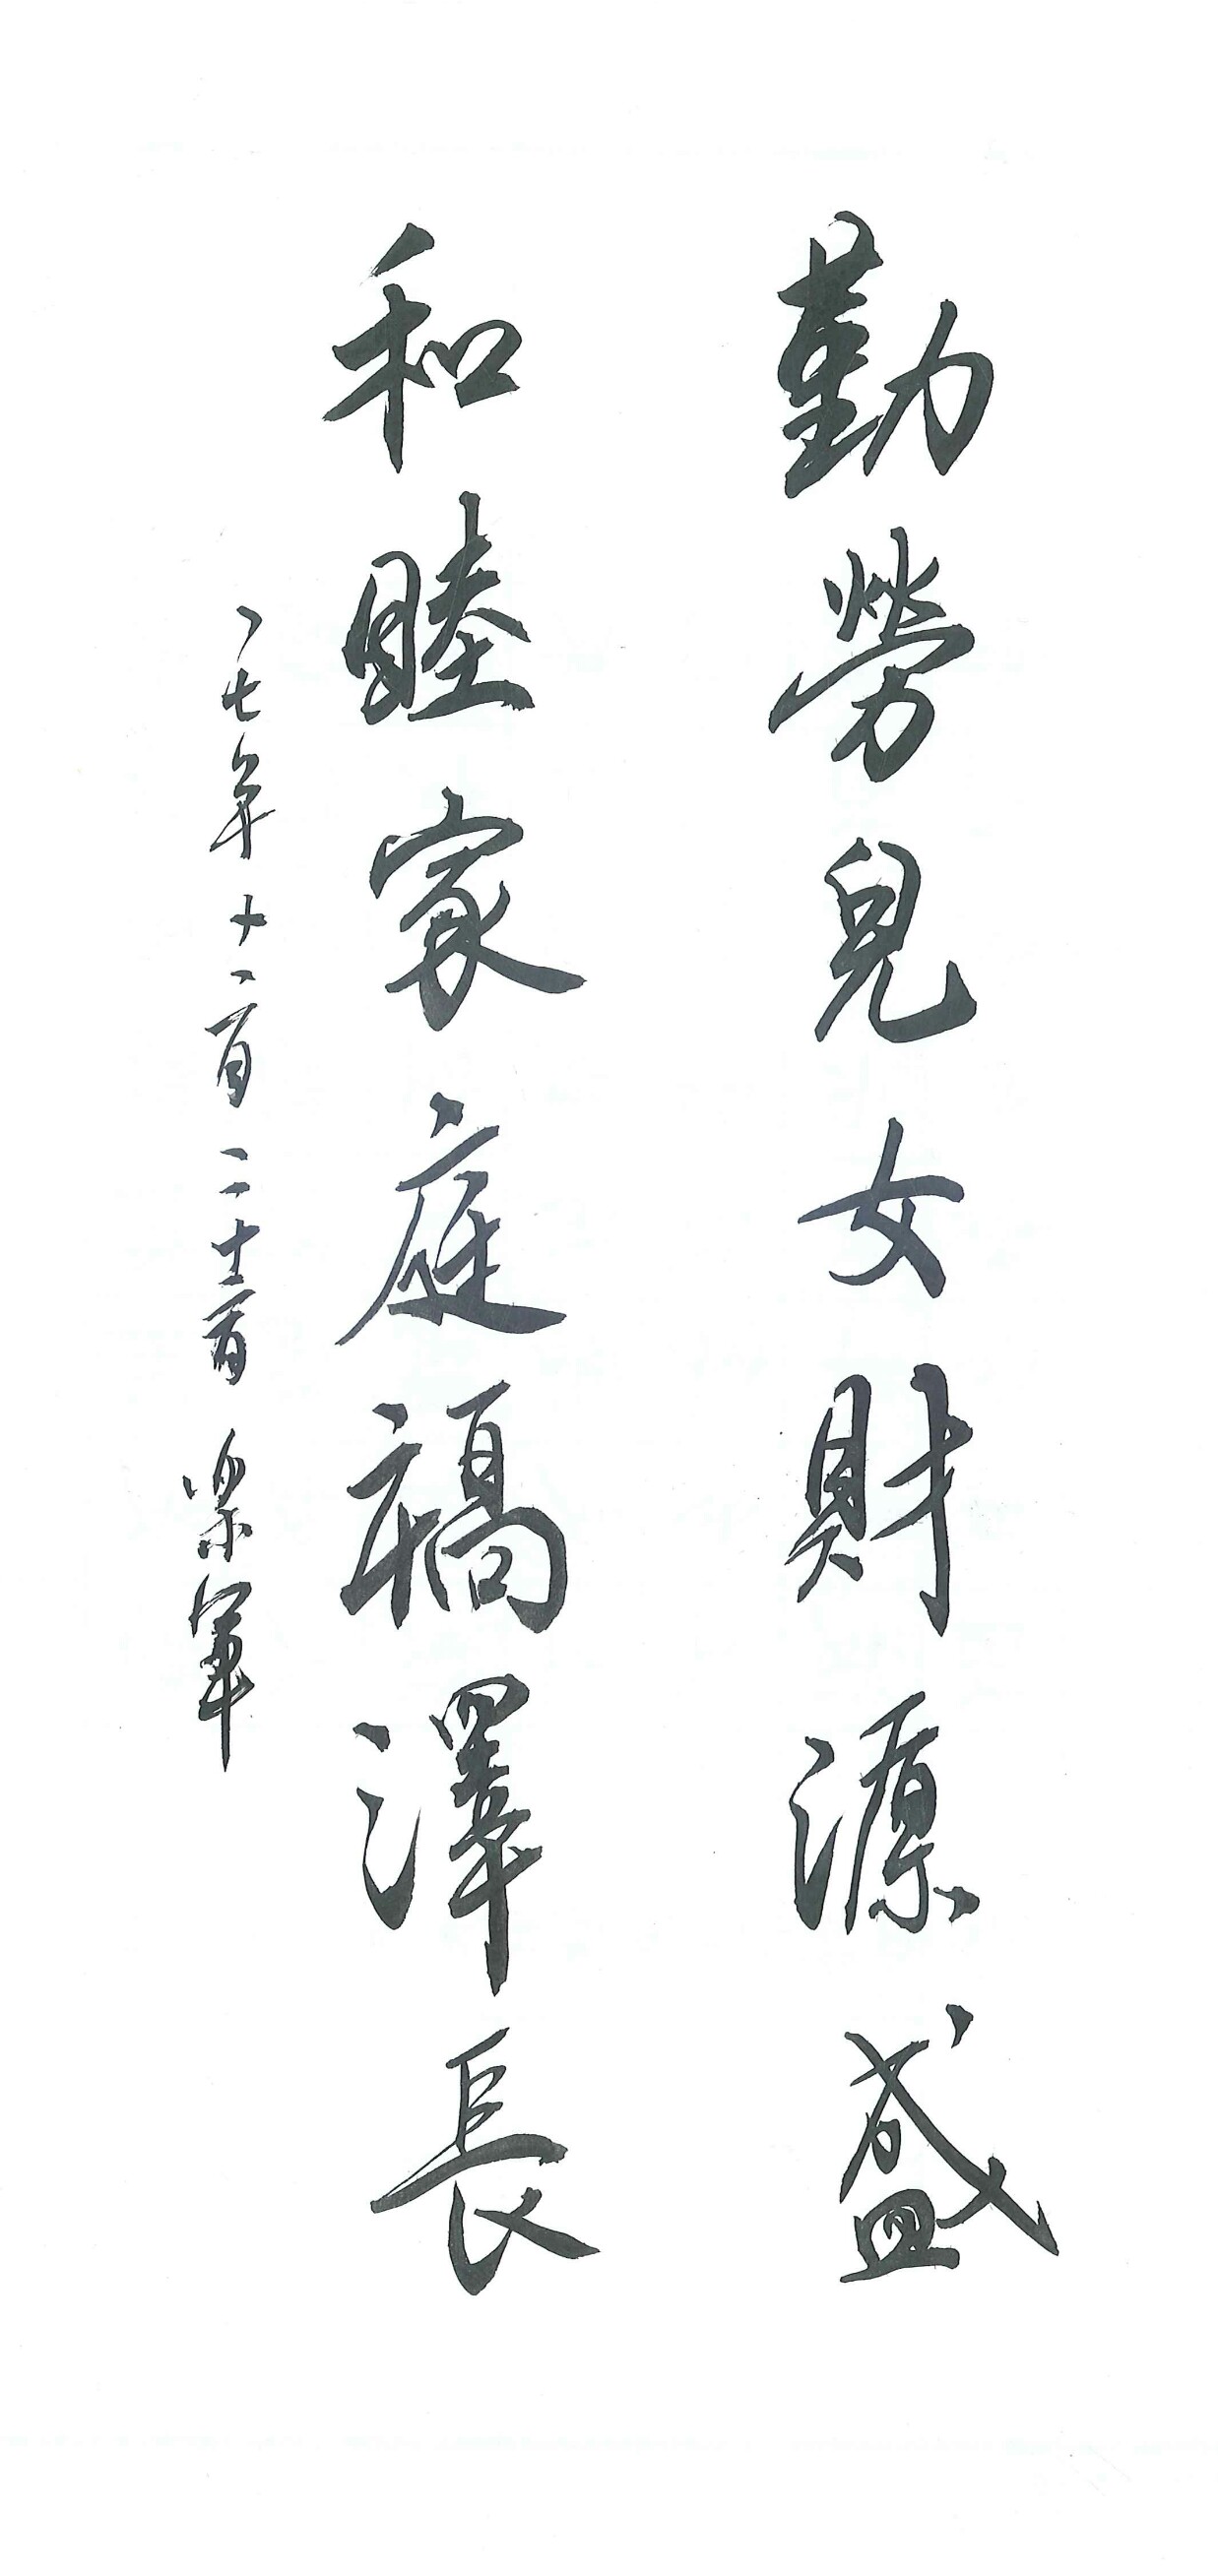 勤勞兒女財源盛
和睦家庭福澤長
一七年十一月二十一日 樂軍